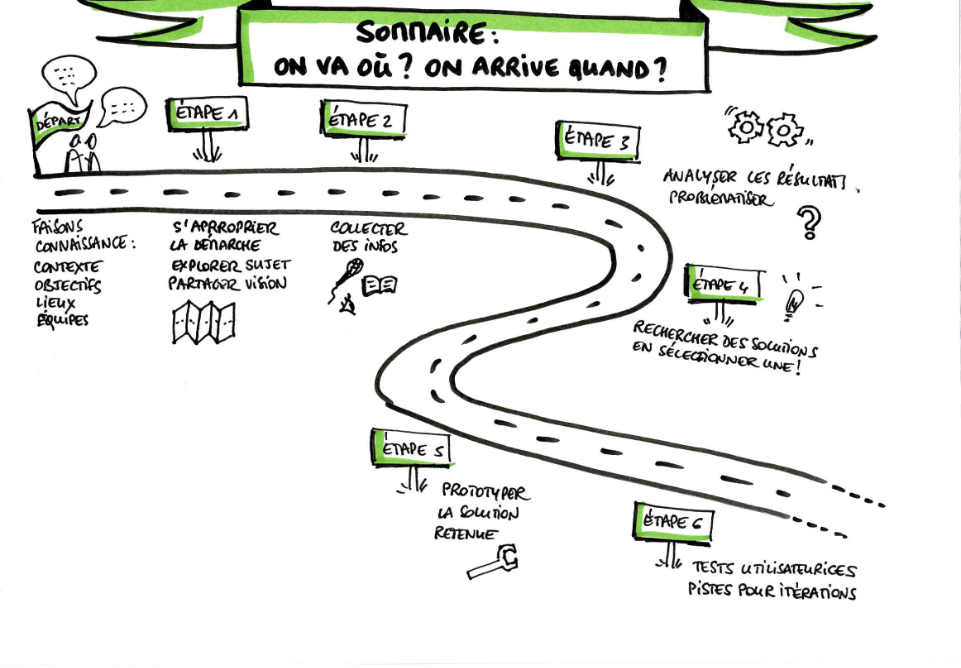 SOMMAIRE:
ON VA OÙ? ON ARRIVE QUAND?
DÉPART
ÉTAPE 1
ÉTAPE 2
ÉTAPE 3
ANALYSER LES RÉSULTATS,
PROBLÉMATISER
?
FAISONS
CONNAISSANCE:
CONTEXTE
OBJECTIFS
LIEUX
ÉQUIPES
S'APPROPRIER
LA DÉMARCHE
EXPLORER SUJET
PARTAGER VISION
COLLECTER
DES INFOS
ÉTAPE 4
RECHERCHER DES SOLUTIONS
EN SÉLECTIONNER UNE!
ÉTAPE 5
PROTOTYPER
LA SOLUTION
RETENUE
ÉTAPE 6
TESTS UTILISATEURICES
PISTES POUR ITÉRATIONS